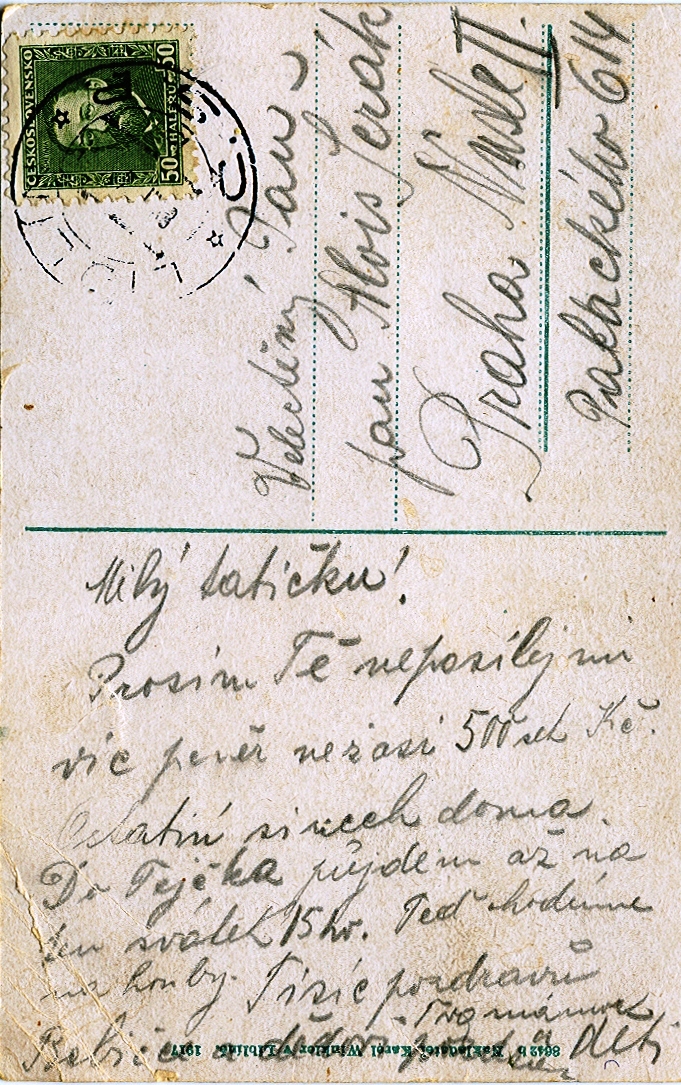 ČESKOSLOVENSKO
50 HALÉŘŮ 50
Velectěný Pan
pan Alois Šerák
Praha Nusle II.
Palackého 614
Milý tatičku!
Prosím Tě neposílej mi
víc peněz než asi 500 set Kč.
Ostatní si nech doma.
Do Tejčka půjdem až na
ten svátek 15ho. Teď chodíme
na houby. Tisíc pozdravů
Tvá máma
Babička a děti
děti
8642 b Nakladatel Karel Winkler v Libšicích 1917